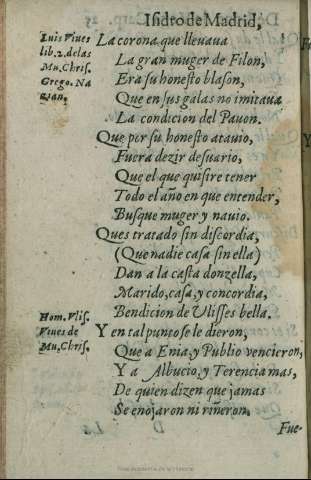 Isidro de Madrid,
Luis Viues
lib. 2. de las
Mu. Chris.
Grego. Na
zian.
La corona que lleuaua
La gran muger de Filon,
Era su honesto blason,
Que en sus galas no imitaua
La condicion del Pauon.
Que por su honesto atauio,
Fuera dezir desuario,
Que el que quisire tener
Todo el año en que entender,
Busque muger y nauio.
Ques tratado sin discordia,
(Que nadie casa sin ella)
Dan a la casta donzella,
Marido, casa, y concordia,
Bendicion de Ulisses bella.
Hom. Ulis.
Viues de
Mu. Chris.
Y en tal punto se le dieron,
Que a Enia, y Publio vencieron,
Y a Albucio, y Terencia mas,
De quien dizen que jamas
Se enojaron ni riñeron.
Fue-